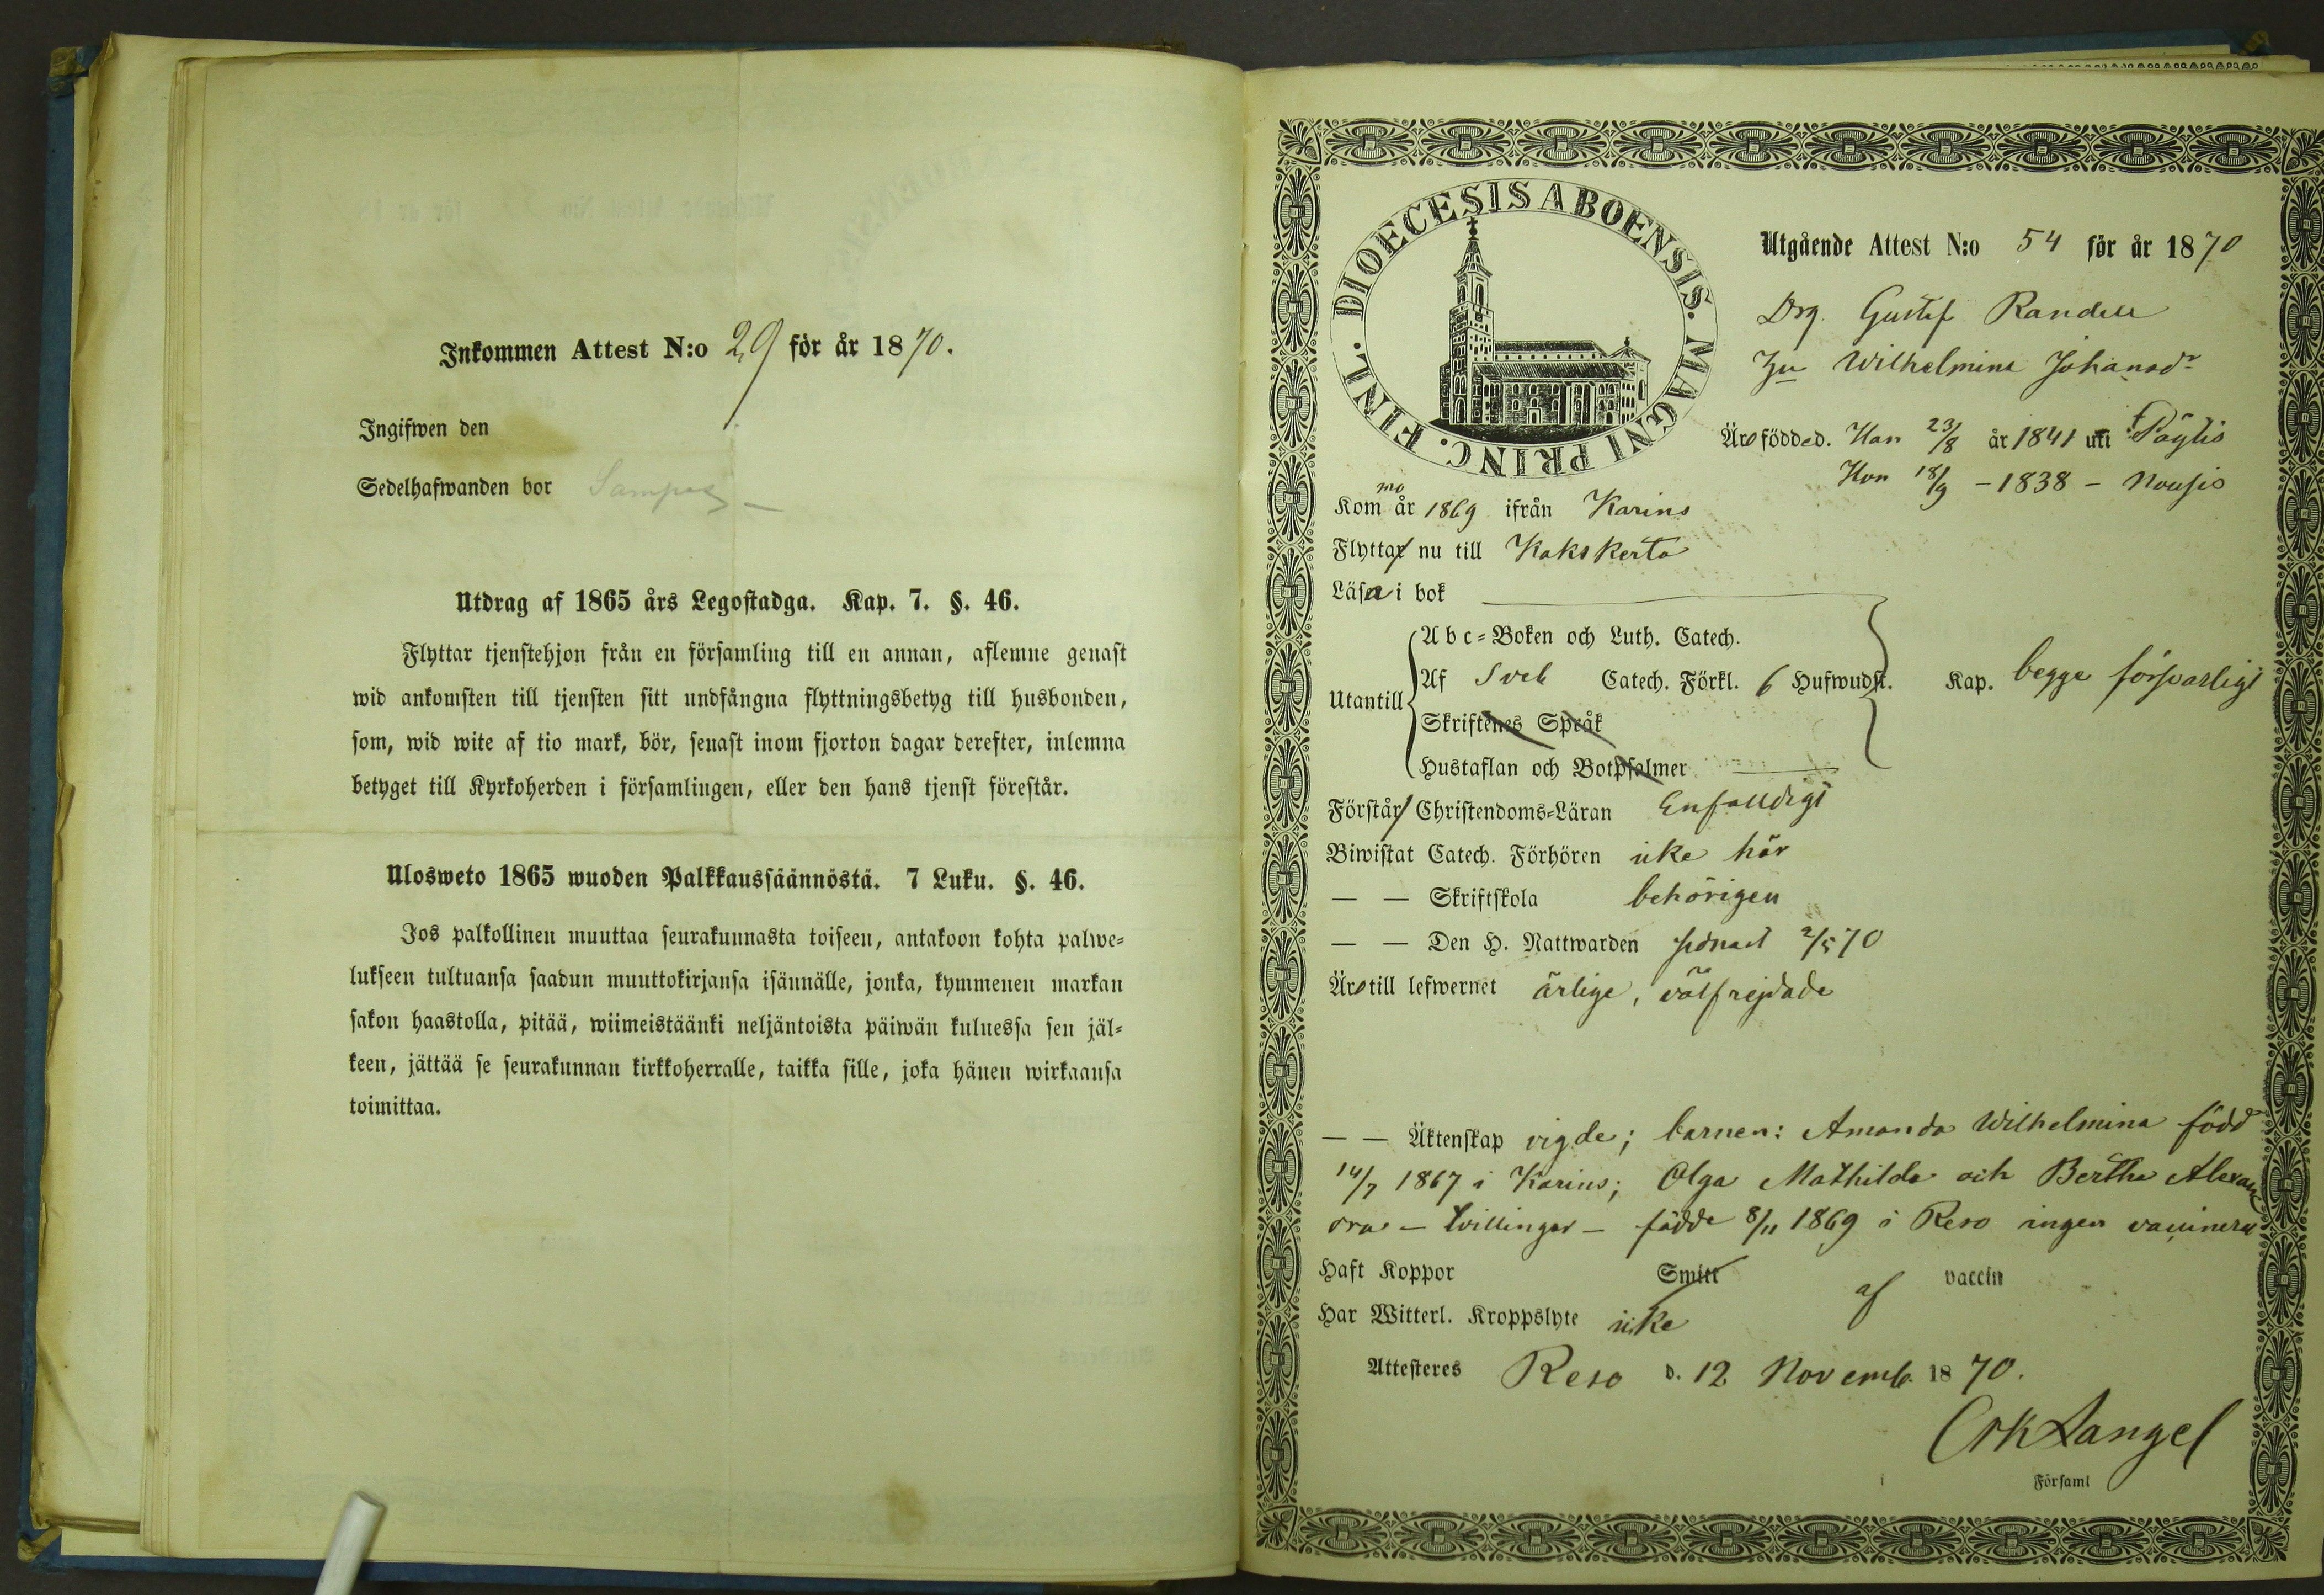 Inkommen Attest N:o 29 för år 1870.
Ingifwen den
Sedelhafwanden bor
Utdrag af 1865 års Legostadga. Kap. 7. §. 46.
Flyttar tjenstehjon från en församling till en annan, aflemne genast
wid ankomsten till tjensten sitt undfångna flyttningsbetyg till husbonden,
som, wid wite af tio mark, bör, senast inom fjorton dagar derefter, inlemna
betyget till Kyrkoherden i församlingen, eller den hans tjenst förestår.
Ulosweto 1865 wuoden Palkkaussäännöstä. 7 Luku. §. 46.
Jos palkollinen muuttaa seurakunnasta toiseen, antakoon kohta palwe-
lukseen tultuansa saadun muuttokirjansa isännälle, jonka, kymmenen markan
sakon haastolla, pitää, wiimeistäänki neljäntoista päiwän kuluessa sen jäl-
keen, jättää se seurakunnan kirkkoherralle, taikka sille, joka hänen wirkaansa
toimittaa.
DIOECESIS ABOENSIS. MAGNI PRINC. FINL.
Utgående Attest N:o 54 för år 1870
Drg. Gustaf Randell
Wilhelmina Johansdr
Äro födde d. Han 23/8 år 1841 uti Pöytis
Hon 18/9 - 1838 - Nousis
Kommo år 1869 ifrån Karins
Flytta nu till Kakskerta
Läsa i bok
Abc-Boken och Luth. Catech.
Utantill Af Sveb Catech. Förkl. 6 Hufwudst. Kap. begge försvarligt
Skriftenes Språk
Hustaflan och Botpsalmer
Förstå Christendoms-Läran Enfalldigt
Biwistat Catech. Förhören icke här
— — Skriftskola behörigen
— — Den H. Nattwarden sednast 2/5 70
Äro till lefwernet ärlige, välfrejdade
— — Äktenskap vigde; barnen: Amanda Wilhelmina född
14/7 1867 i Karins; Olga Mathilda och Bertha Alexan
dra - tvillingar - födde 8/11 1869 i Reso ingen vaccinerad
Haft Koppor Smitt af vaccin
Har Witterl. Kroppslyte icke
Attesteres Reso d. 12 Novemb. 1870.
Langel
i Församl